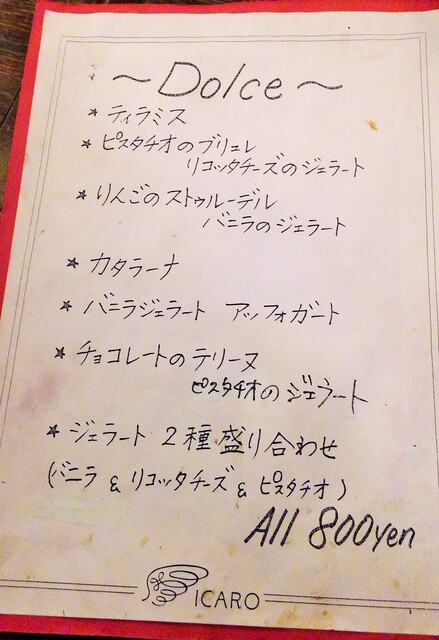 ～Dolce～
★ ティラミス
★ ピスタチオのブリュレ
リコッタチーズのジェラート
★ りんごのストゥルーデル
バニラのジェラート
★ カタラーナ
★ バニラジェラート アッフォガート
★ チョコレートのテリーヌ
ピスタチオのジェラート
★ ジェラート 2種盛り合わせ
(バニラ & リコッタチーズ & ピスタチオ)
All 800yen
ICARO